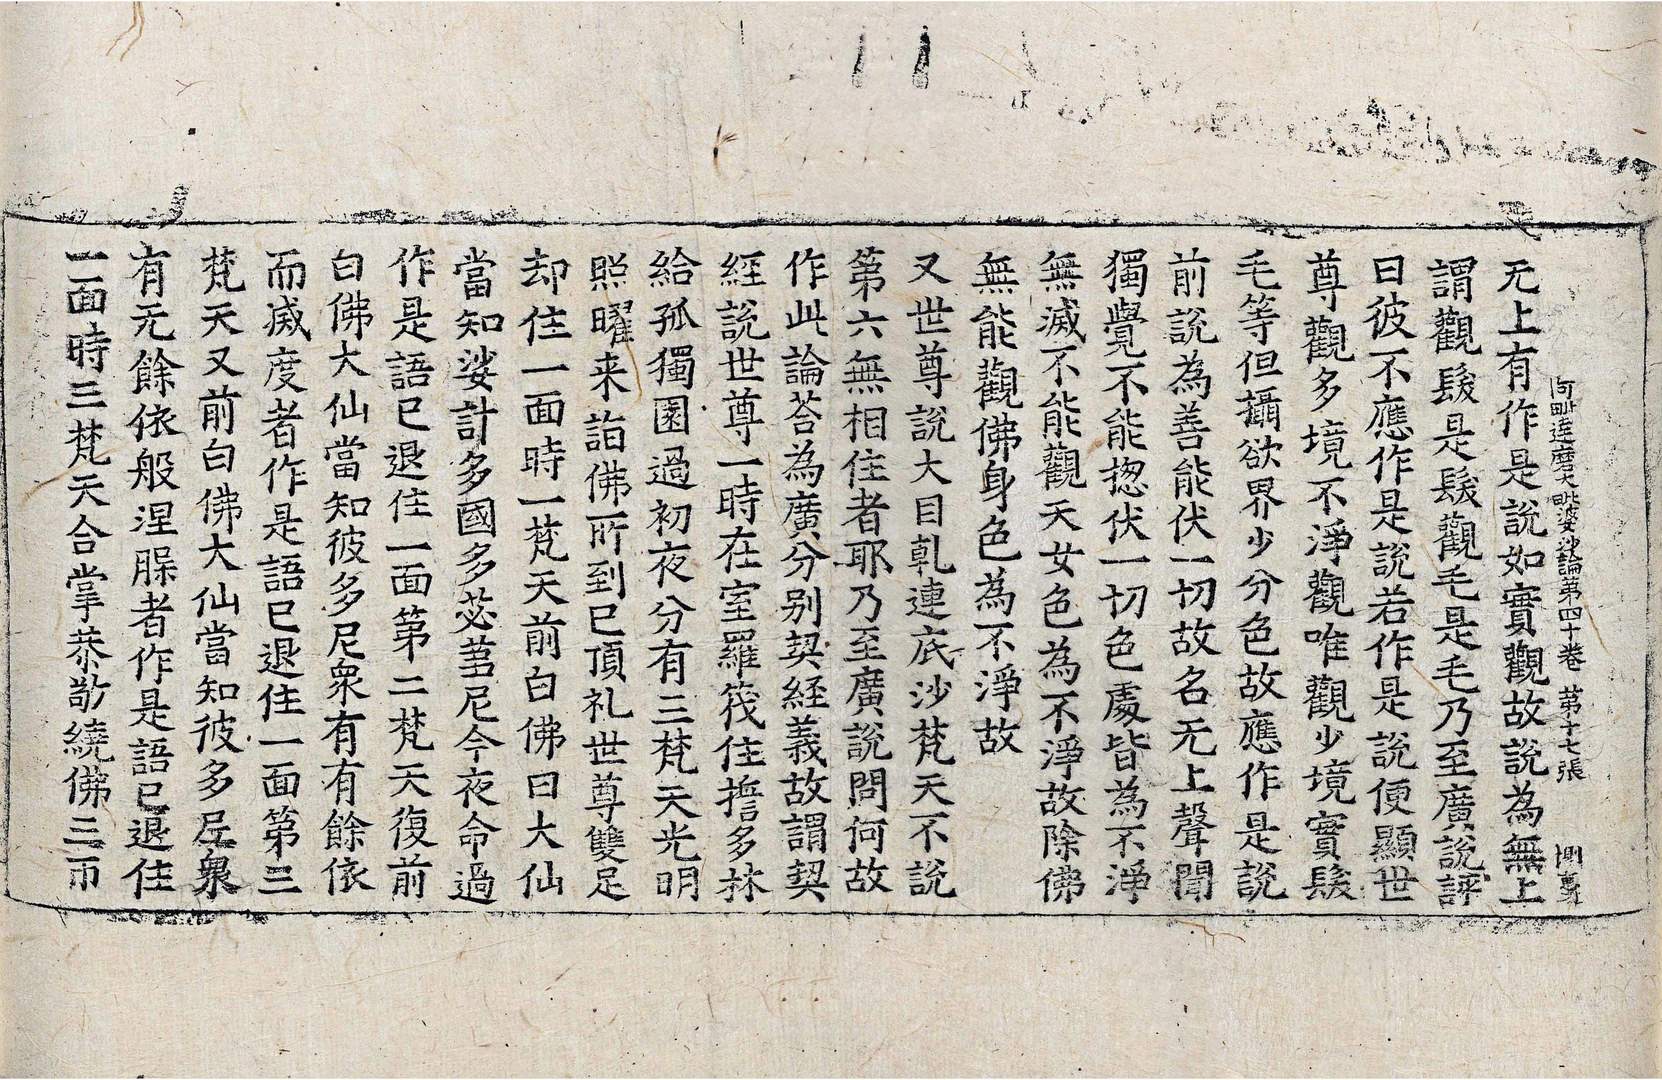 阿毗達磨大毗婆沙論第四十卷 第十七張
无上有作是說如實觀故說為無上
謂觀髮是髮觀毛是毛乃至廣說評
曰彼不應作是說若作是說便顯世
尊觀多境不淨觀唯觀少境實髮
毛等但攝欲界少分色故應作是說
前說為善能伏一切故名无上聲聞
獨覺不能揔伏一切色處皆為不淨
無滅不能觀天女色為不淨故除佛
無能觀佛身色為不淨故
又世尊說大目乹連底沙梵天不說
第六無相住者耶乃至廣說問何故
作此論荅為廣分別契経義故謂契
經說世尊一時在室羅筏住擔多林
給孤獨園過初夜分有三梵天光明
照曜来詣佛所到已頂礼世尊雙足
却住一面時一梵天前白佛曰大仙
當知娑計多國多苾芻尼今夜命過
作是語已退住一面第二梵天復前
白佛大仙當知彼多尼衆有有餘依
而滅度者作是語已退住一面第三
梵天又前白佛大仙當知彼多尼衆
有无餘依般涅腂者作是語已退住
一面時三梵天合掌恭敬繞佛三帀